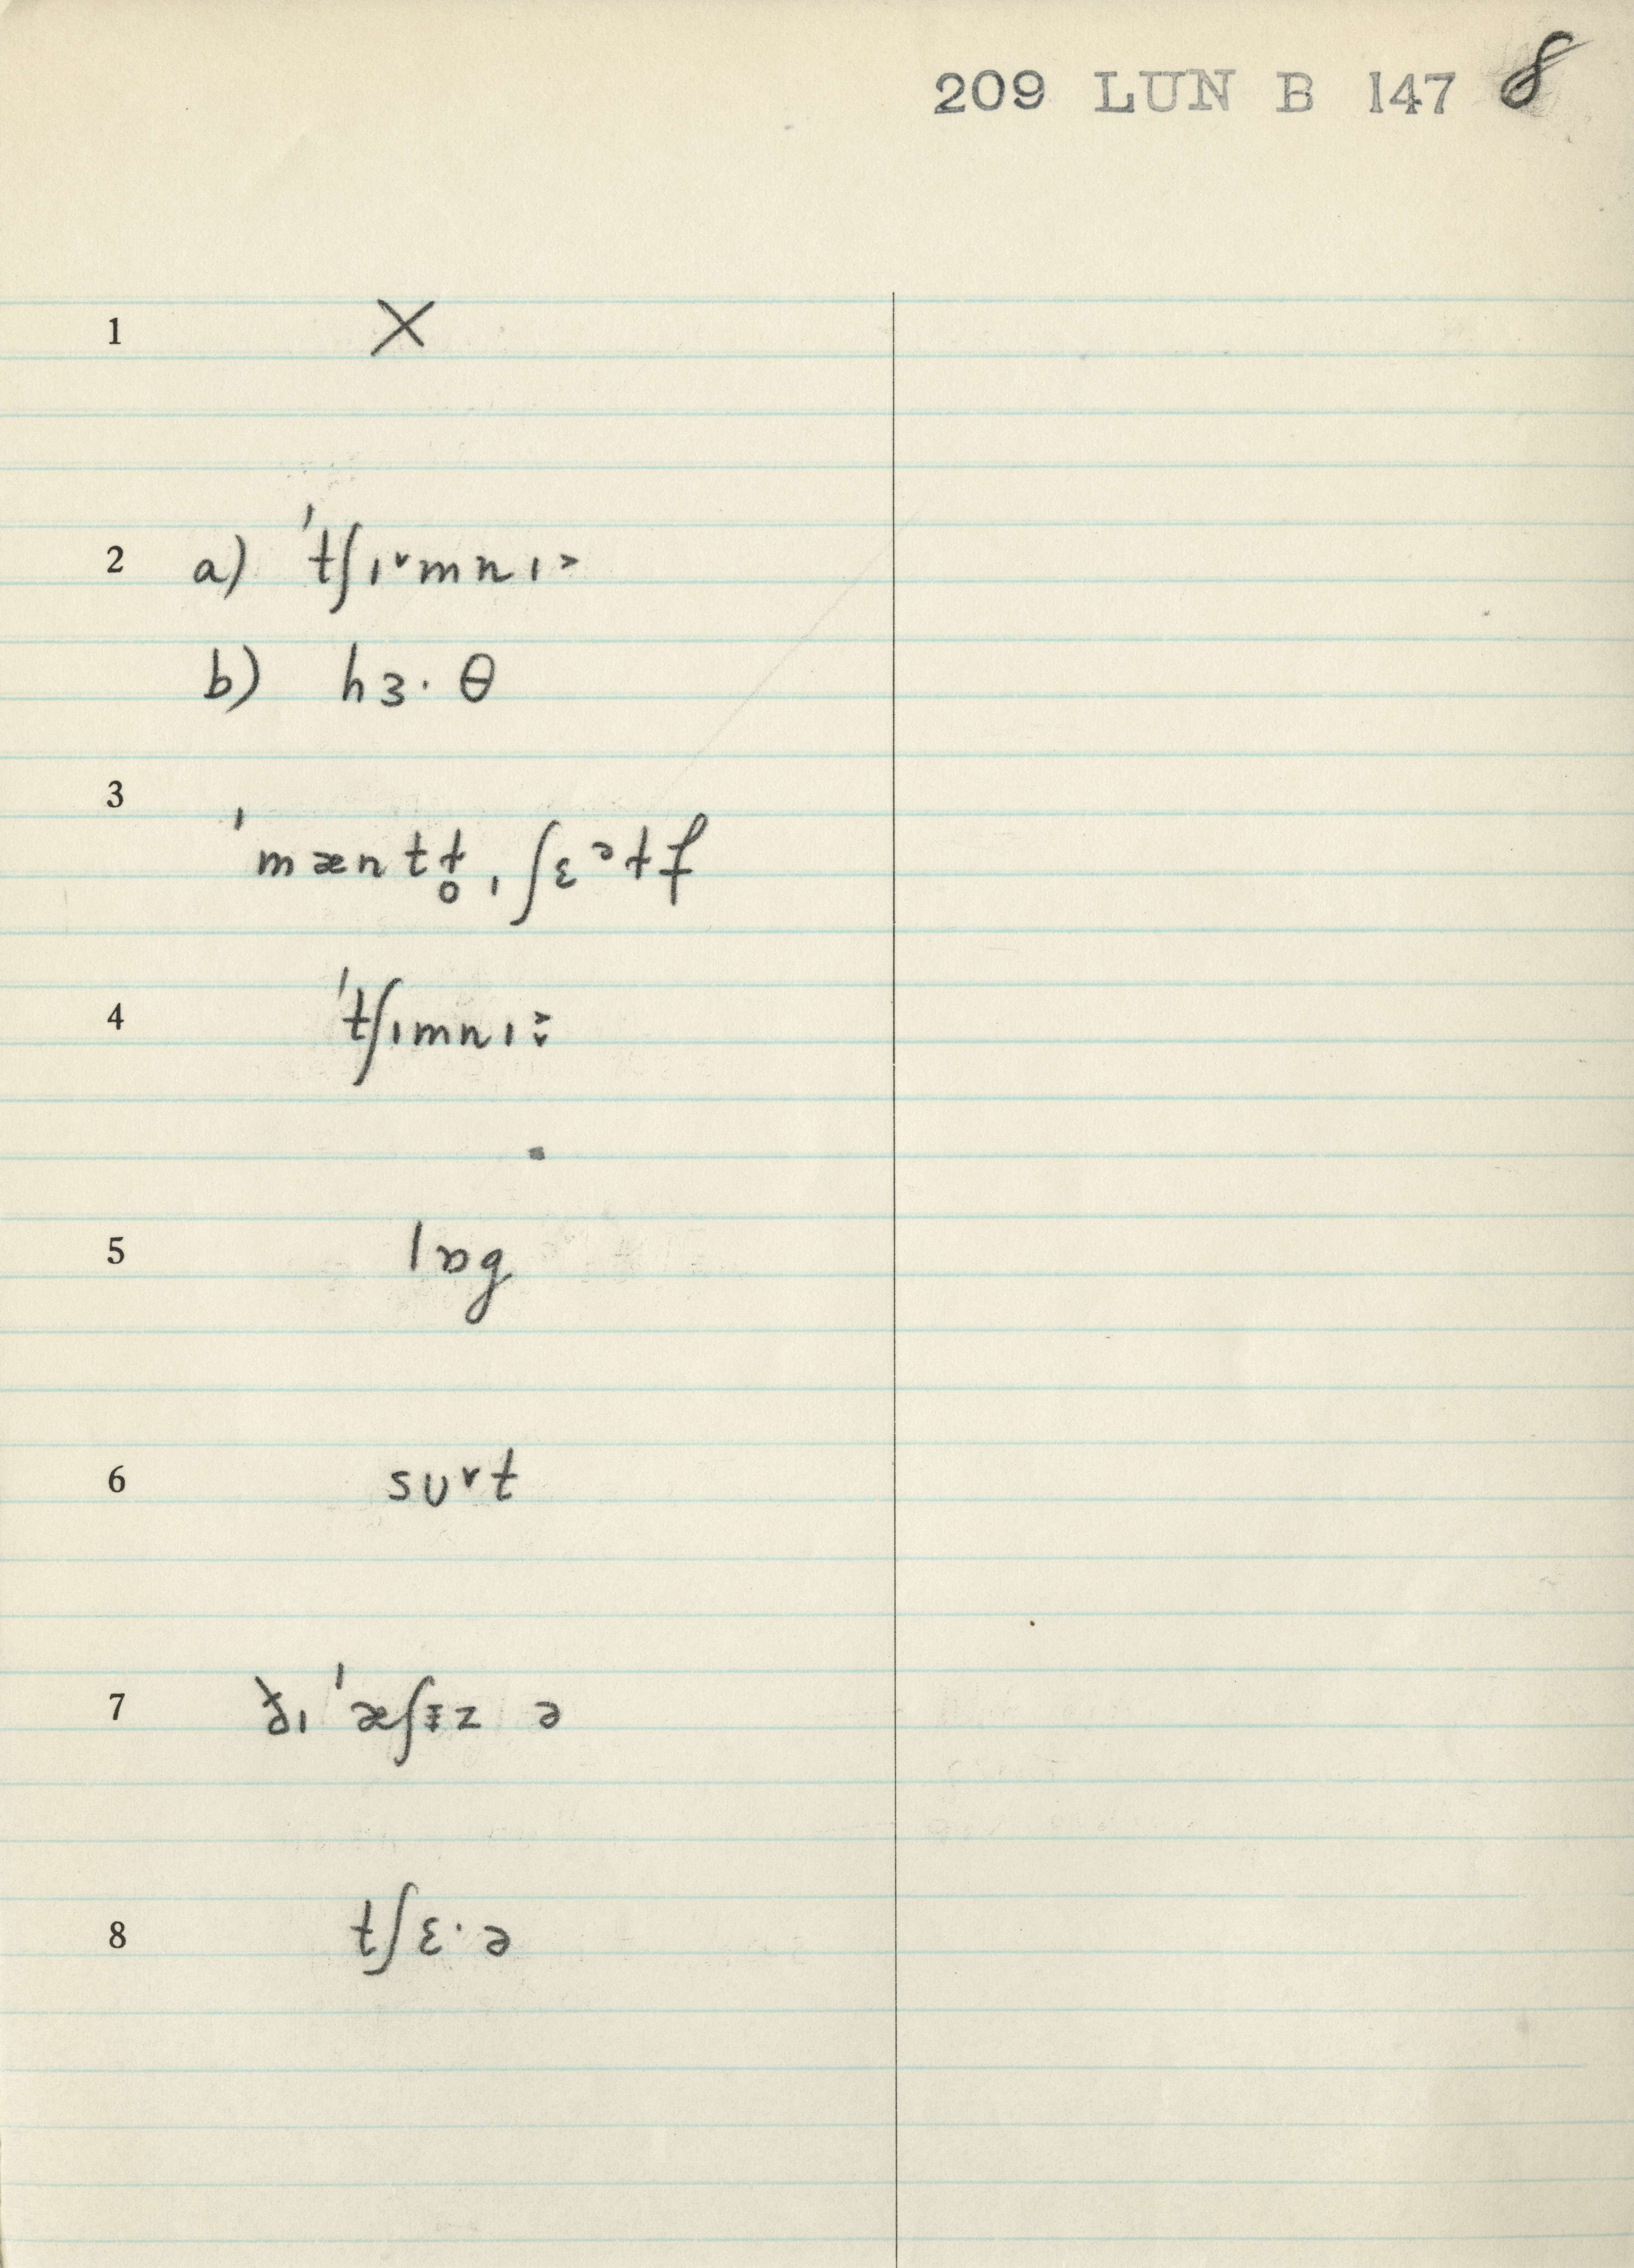 209 LUN B 147 8
1 X
2 a) ˈtʃɪ˅mnɪ˃
b) hɜ· θ
3
ˈmæntɫ̥ˌʃɛᵊɫf
4 ˈtʃɪmnɪ˃̬
5 lɒg
6 sʊ˅t
7 ðɪ ˈæʃɪ̵z ə
8 tʃɛ·ə